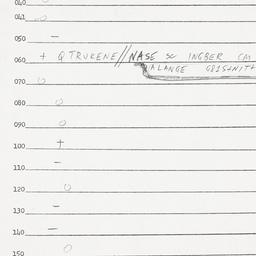 040
041
050 –
+ Q TRUKENE // NASE sc INGBER CM
060
070
080
090
100 +
110 –
120
130 –
140 –
150